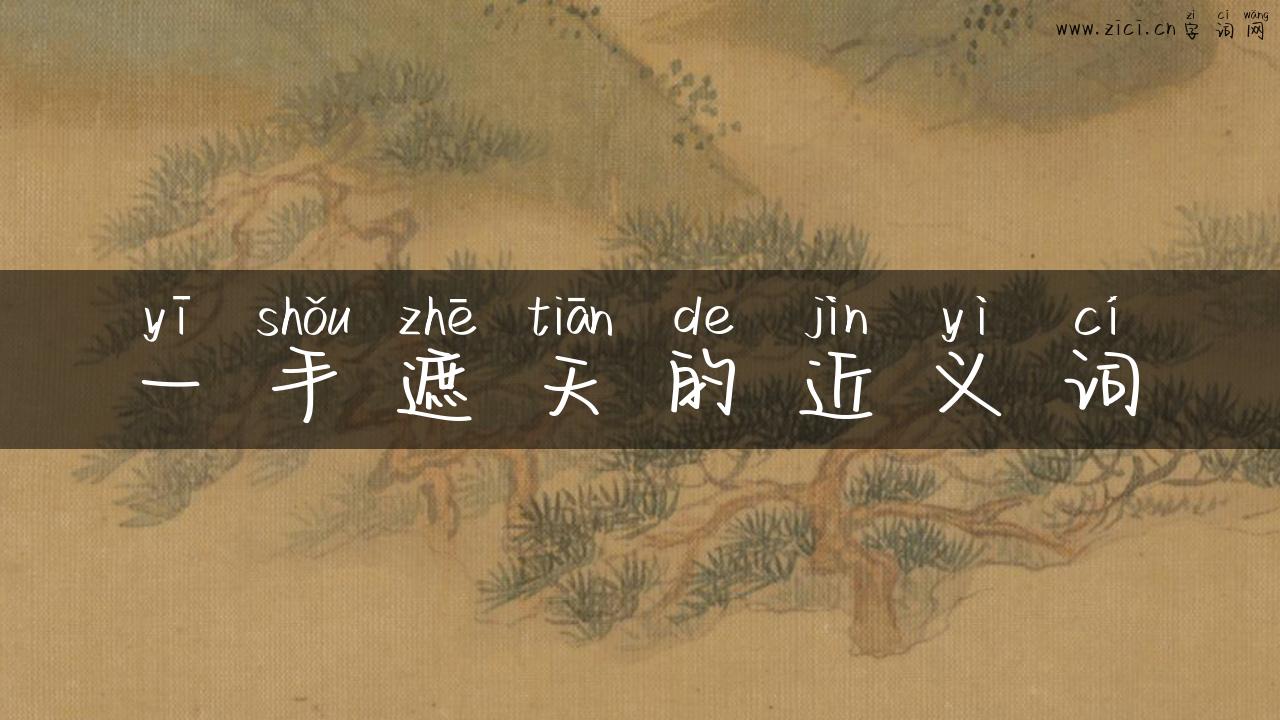 www.zici.cn
zì cí wǎng
字词网
yī shǒu zhē tiān de jìn yì cí
一手遮天的近义词